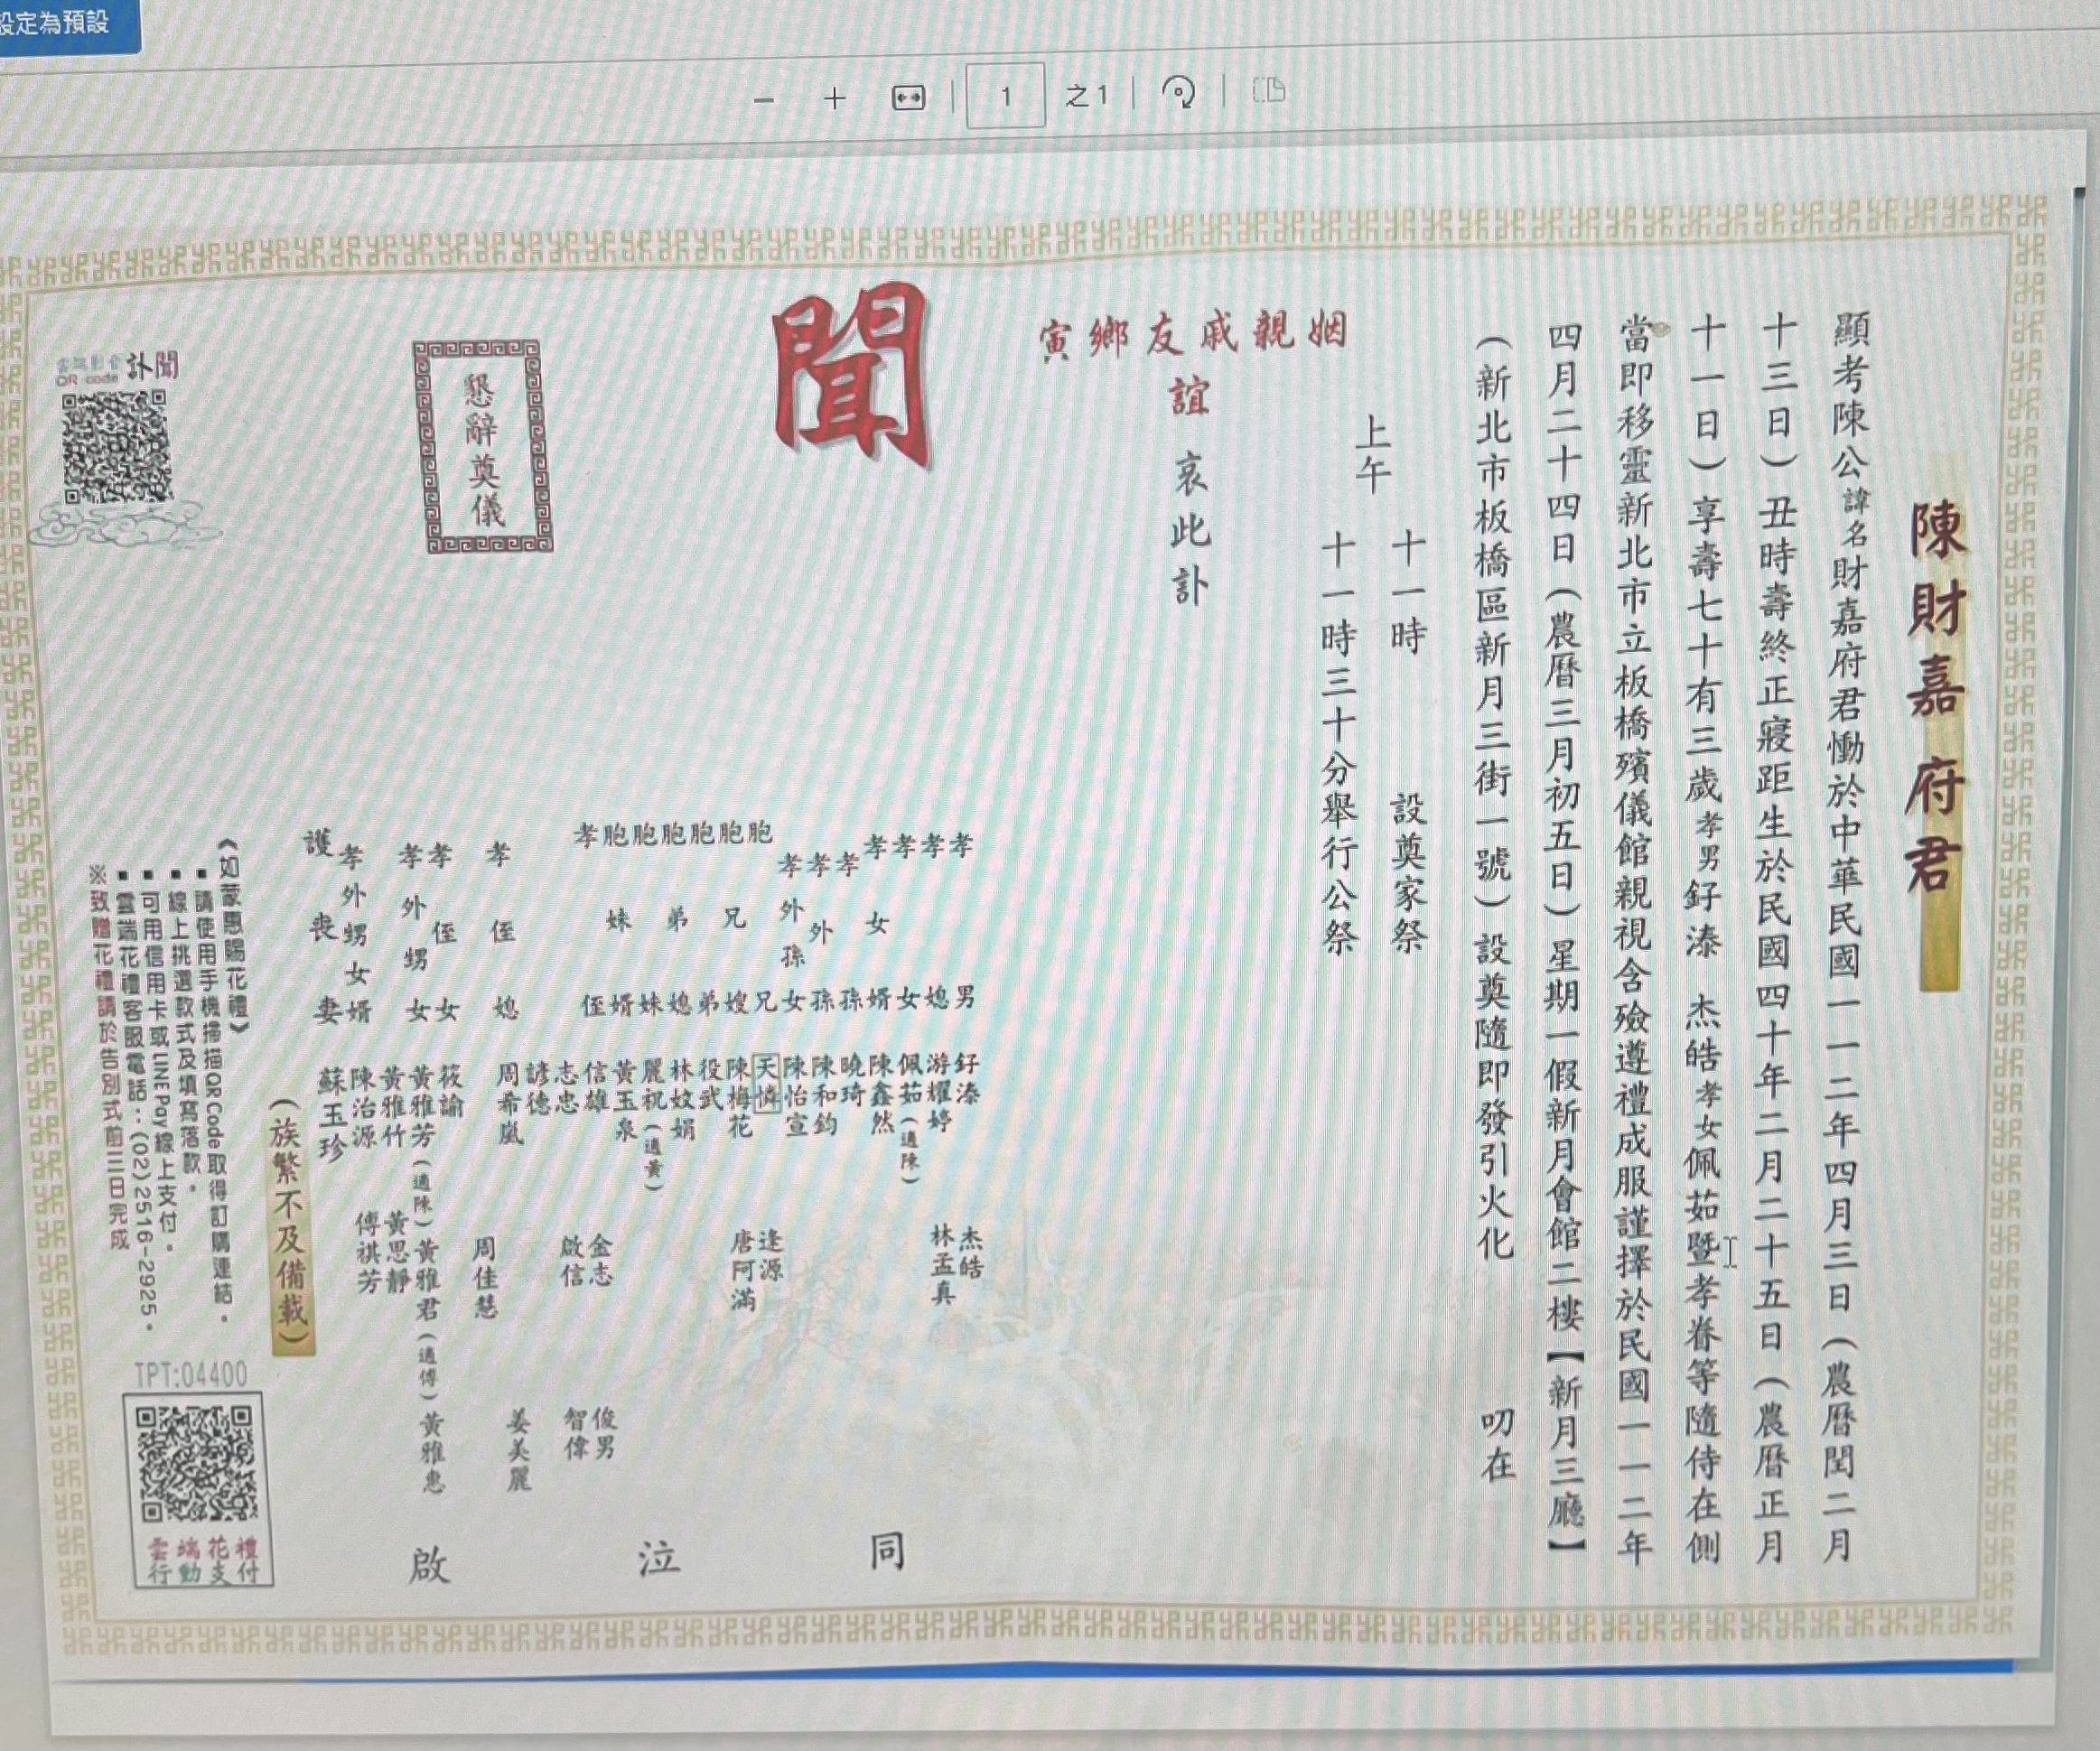 設定為預設
1 之1
陳財嘉府君
顯考陳公諱名財嘉府君慟於中華民國一一二年四月三日（農曆閏二月
十三日）丑時壽終正寢距生於民國四十年二月二十五日（農曆正月
十一日）享壽七十有三歲孝男釪溱 杰皓孝女佩茹暨孝眷等隨侍在側
當即移靈新北市立板橋殯儀館親視含殮遵禮成服謹擇於民國一一二年
四月二十四日（農曆三月初五日）星期一假新月會館二樓【新月三廳】
（新北市板橋區新月三街一號）設奠隨即發引火化 叨在
上午
十一時 設奠家祭
十一時三十分舉行公祭
姻親戚友鄉寅
誼 哀此訃
聞
懇辭奠儀
孝男 釪溱 杰皓
孝媳 游耀婷 林孟真
孝女 佩茹（適陳）
孝女婿 陳鑫然
孝孫 曉琦
孝外孫 陳和鈞
孝外孫女 陳怡宣
胞兄 天憐 逢源
胞兄嫂 陳梅花 唐阿滿
胞弟 役武
胞弟媳 林妏娟
胞妹 麗祝（適黃）
胞妹婿 黃玉泉
孝侄 信雄 金志 俊男
志忠 啟信 智偉
諺德
孝侄媳 周希嵐 周佳慧 姜美麗
孝侄女 筱諭
孝外甥女 黃雅芳（適陳）黃雅君（適傅）黃雅惠
黃雅竹 黃思靜
孝外甥女婿 陳治源 傅祺芳
護喪妻 蘇玉珍
（族繁不及備載）
同 泣 啟
訃聞
QR code
《如蒙惠賜花禮》
▪請使用手機掃描QR Code取得訂購連結。
▪線上挑選款式及填寫落款。
▪可用信用卡或LINE Pay線上支付。
▪雲端花禮客服電話：(02)2516-2925。
※致贈花禮請於告別式前三日完成
TPT:04400
雲端花禮
行動支付